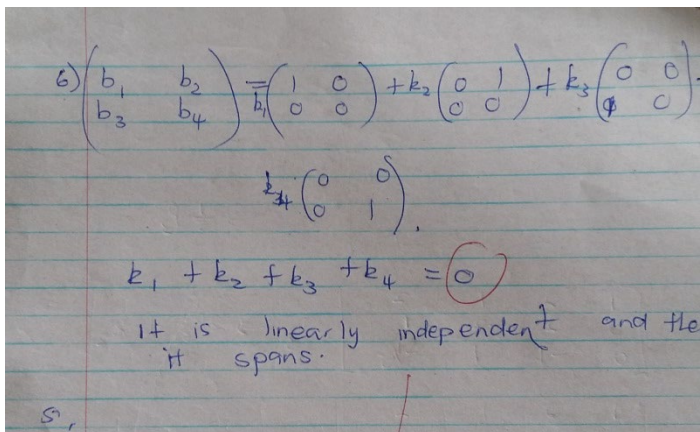 6) ( b₁ b₂ ) = k₁ ( 1 0 ) + k₂ ( 0 1 ) + k₃ ( 0 0 ) +
( b₃ b₄ ) ( 0 0 ) ( 0 0 ) ( 1 0 )
k₄ ( 0 0 )
( 0 1 ) .
k₁ + k₂ + k₃ + k₄ = 0
It is linearly independent and the
it spans.
5,